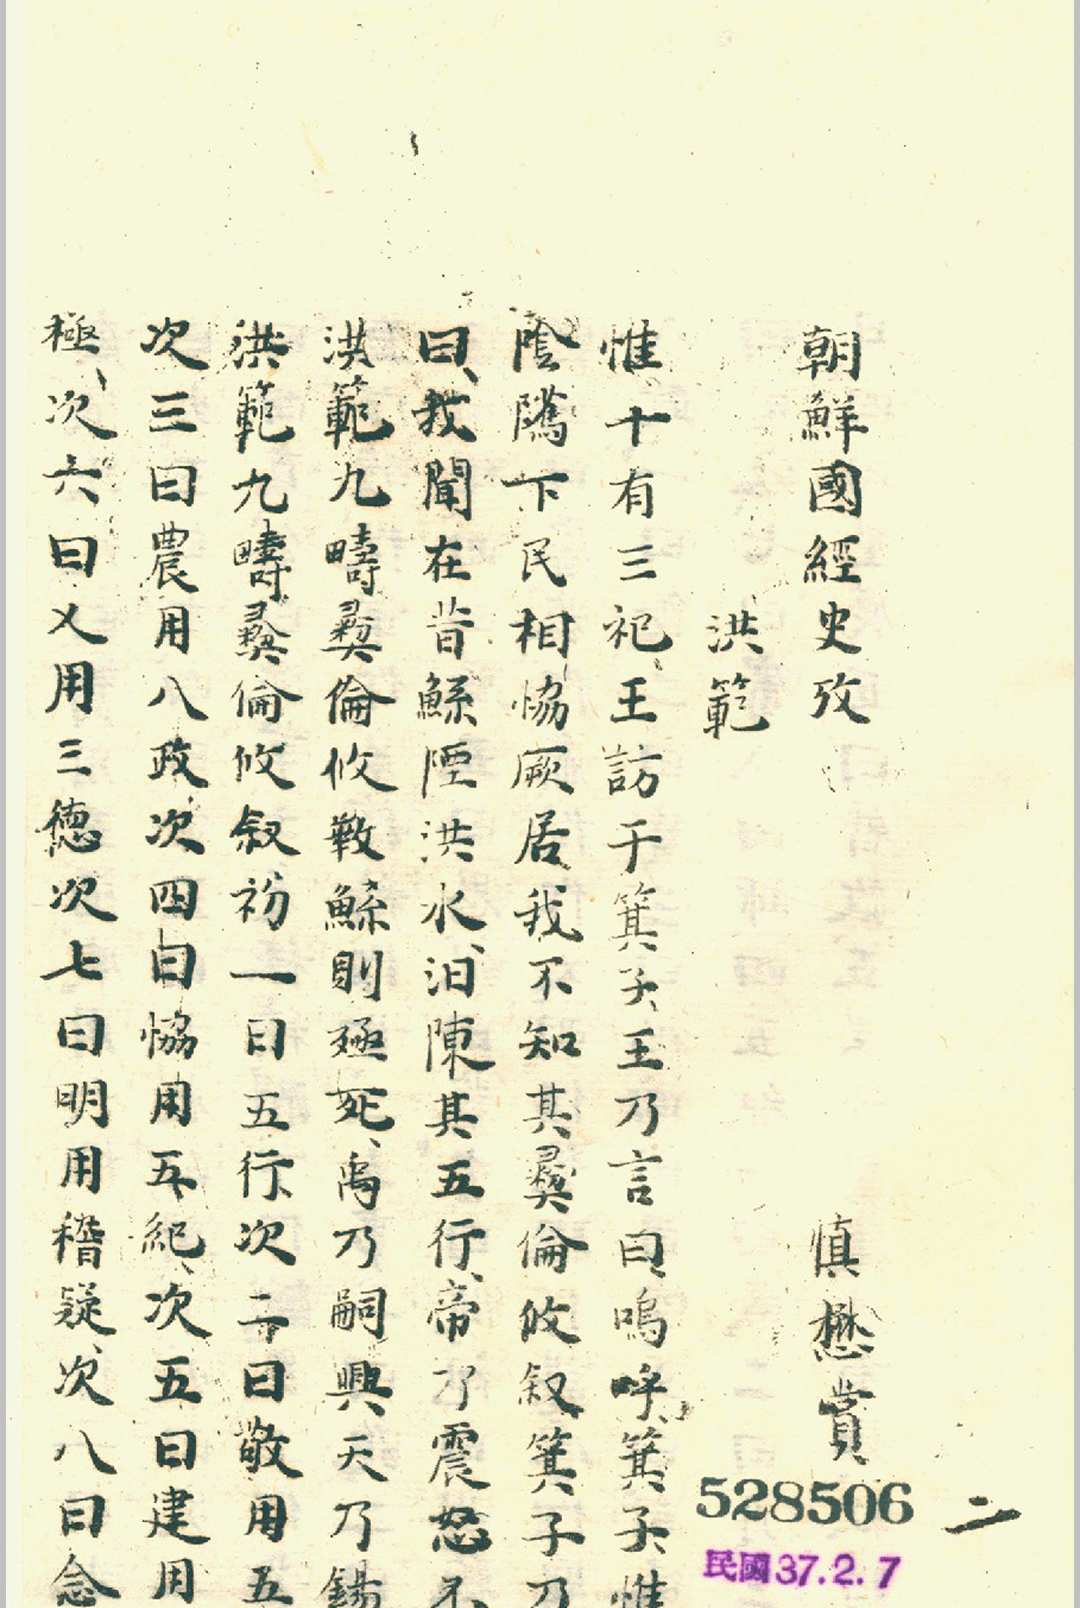 朝鮮國經史攷
慎懋賞
洪範
惟十有三祀、王訪于箕子、王乃言曰、嗚呼、箕子、惟
陰隲下民相恊厥居我不知其彝倫攸叙、箕子乃
曰、我聞在昔鯀陻洪水、汨陳其五行、帝乃震怒不
洪範九疇彝倫攸斁鯀則殛死、禹乃嗣興天乃錫
洪範九疇彝倫攸叙初一曰五行、次二曰敬用五
次三曰農用八政、次四曰恊用五紀、次五曰建用
極、次六曰乂用三德次七曰明用稽疑、次八曰念
528506
民國37.2.7
二